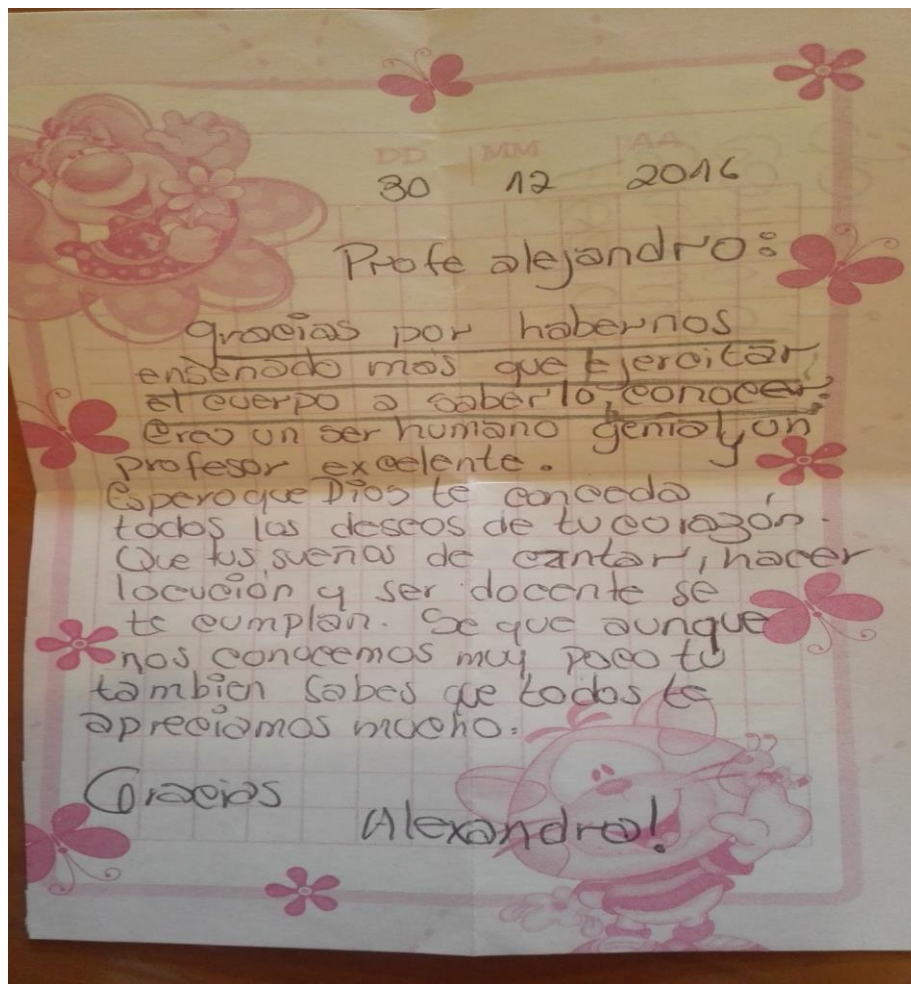 DD MM AA
30 12 2016
Profe alejandro:
gracias por habernos
enseñado mas que Ejercitar
el cuerpo a saberlo, conocer.
Eres un ser humano genial y un
profesor excelente.
Espero que Dios te conceda
todos los deseos de tu corazón.
Que tus sueños de cantar, hacer
locución y ser docente se
te cumplan. Se que aunque
nos conocemos muy poco tú
tambien sabes que todos te
apreciamos mucho.
Gracias
Alexandra!